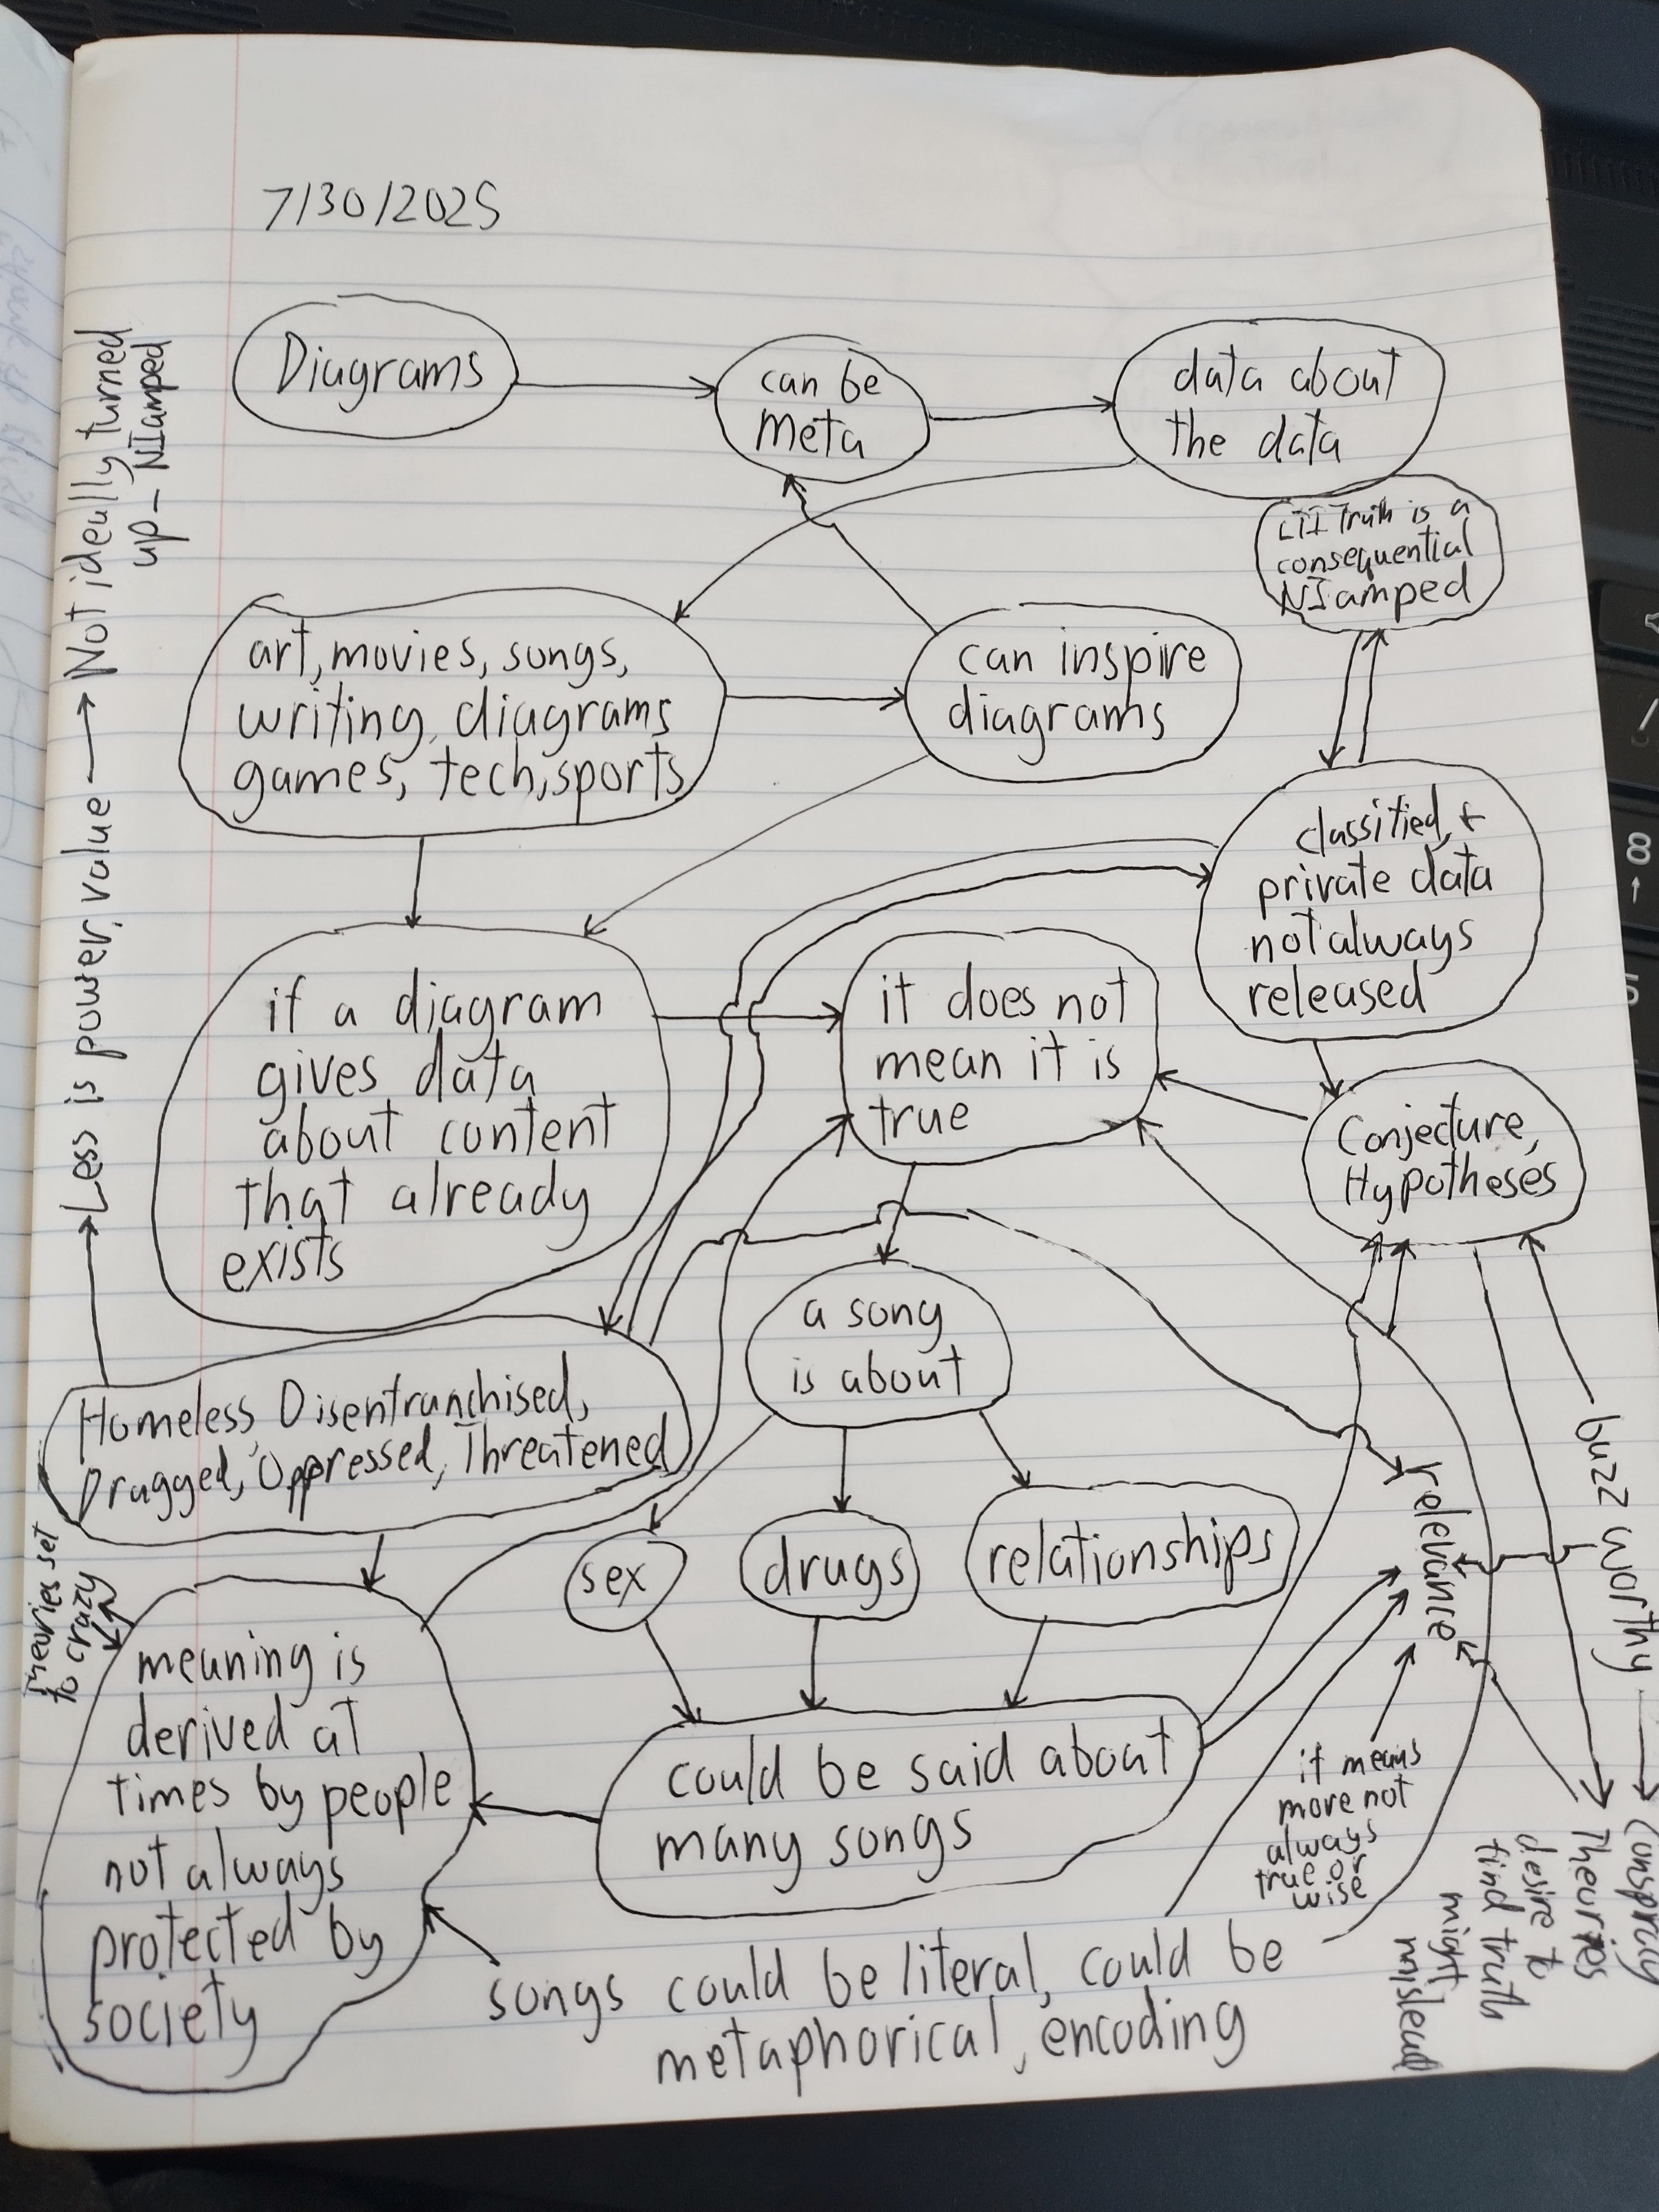 7/30/2025
Diagrams
can be
meta
data about
the data
LII Truth is a
consequential
NI amped
art, movies, songs,
writing, diagrams
games, tech, sports
can inspire
diagrams
classified, +
private data
not always
released
if a diagram
gives data
about content
that already
exists
it does not
mean it is
true
Conjecture,
Hypotheses
a song
is about
Homeless, Disenfranchised,
Drugged, Oppressed, Threatened
sex
drugs
relationships
could be said about
many songs
meaning is
derived at
times by people
not always
protected by
society
songs could be literal, could be
metaphorical, encoding
it means
more not
always
true or
wise
relevance
buzz worthy
Conspiracy
Theories
desire to
find truth
might
mislead
Theories set
to crazy
Less is power, value → Not ideally turned
up - NI amped